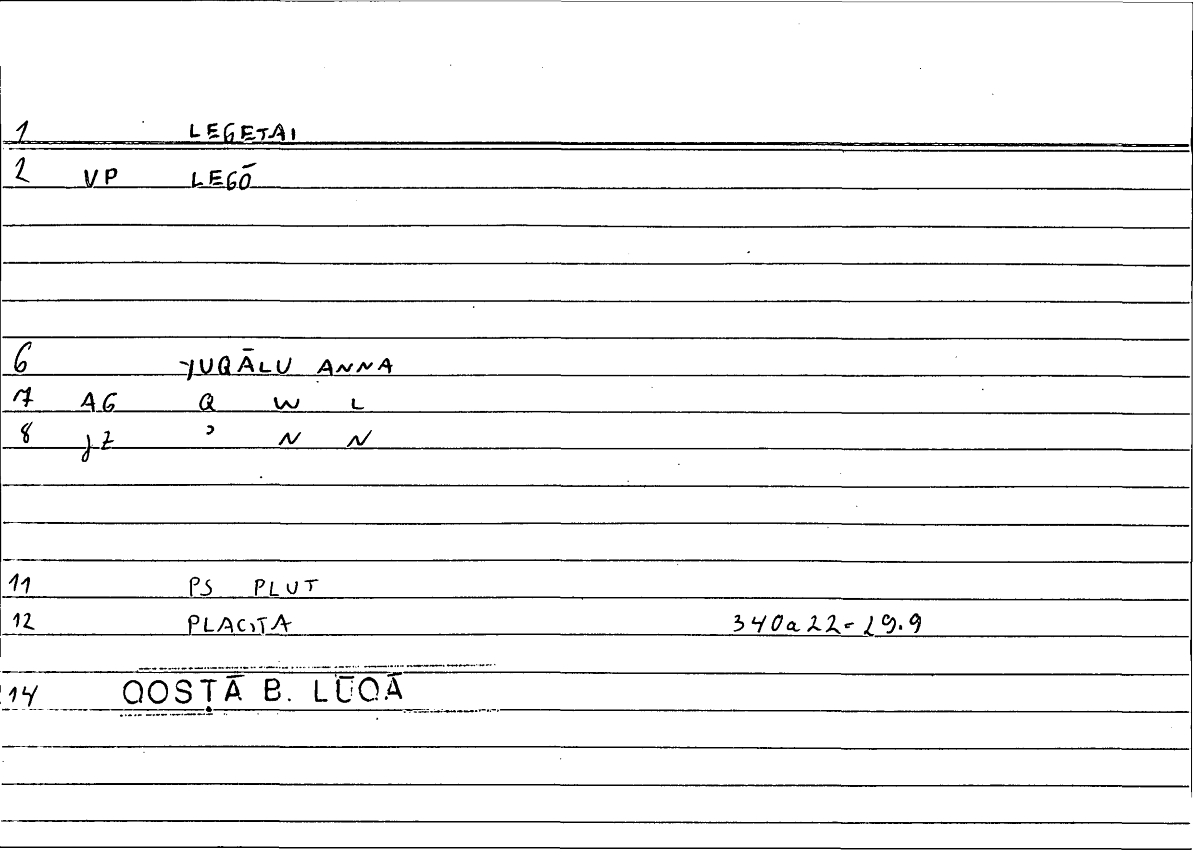 1 LEGETAI
2 VP LEGŌ
6 YUQĀLU ANNA
7 AG Q W L
8 JZ ʾ N N
11 PS PLUT
12 PLACITA 340a22-29.9
14 QOSṬĀ B. LŪQĀ